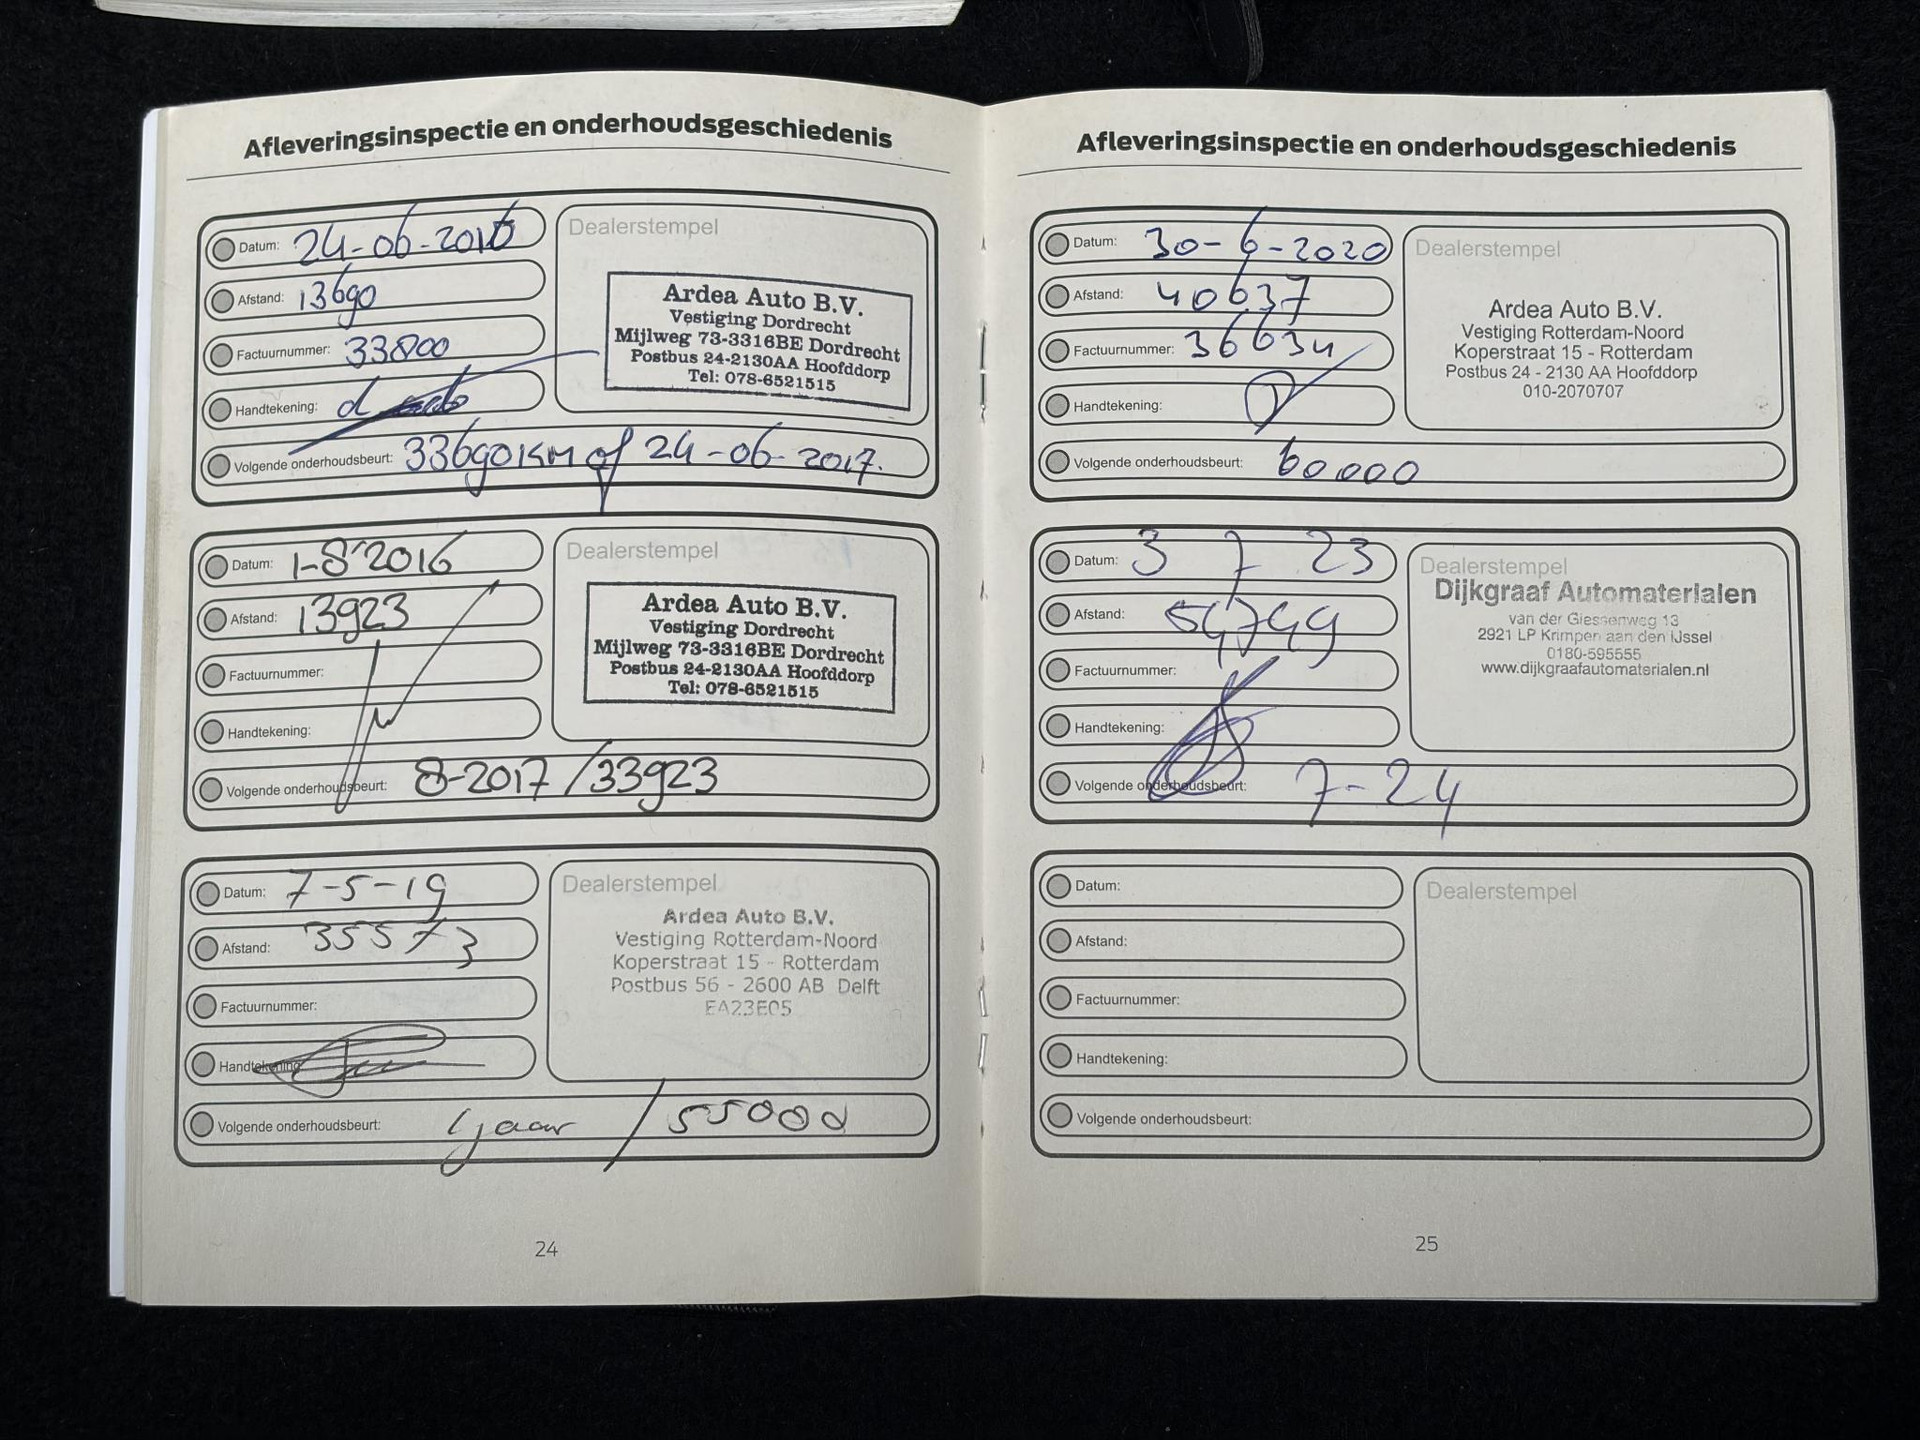 Afleveringsinspectie en onderhoudsgeschiedenis
Datum: 24-06-2016
Afstand: 13690
Factuurnummer: 33800
Handtekening:
Volgende onderhoudsbeurt: 33690KM of 24-06-2017.
Dealerstempel
Ardea Auto B.V.
Vestiging Dordrecht
Mijlweg 73-3316BE Dordrecht
Postbus 24-2130AA Hoofddorp
Tel: 078-6521515
Datum: 1-8-2016
Afstand: 13923
Factuurnummer:
Handtekening:
Volgende onderhoudsbeurt: 8-2017 / 33923
Dealerstempel
Ardea Auto B.V.
Vestiging Dordrecht
Mijlweg 73-3316BE Dordrecht
Postbus 24-2130AA Hoofddorp
Tel: 078-6521515
Datum: 7-5-19
Afstand: 35573
Factuurnummer:
Handtekening
Volgende onderhoudsbeurt: 1 jaar / 55000
Dealerstempel
Ardea Auto B.V.
Vestiging Rotterdam-Noord
Koperstraat 15 - Rotterdam
Postbus 56 - 2600 AB Delft
EA23E05
24
Afleveringsinspectie en onderhoudsgeschiedenis
Datum: 30-6-2020
Afstand: 40637
Factuurnummer: 36634
Handtekening:
Volgende onderhoudsbeurt: 60000
Dealerstempel
Ardea Auto B.V.
Vestiging Rotterdam-Noord
Koperstraat 15 - Rotterdam
Postbus 24 - 2130 AA Hoofddorp
010-2070707
Datum: 3 7 23
Afstand: 54749
Factuurnummer:
Handtekening:
Volgende onderhoudsbeurt: 7-24
Dealerstempel
Dijkgraaf Automaterialen
van der Giessenweg 13
2921 LP Krimpen aan den IJssel
0180-595555
www.dijkgraafautomaterialen.nl
Datum:
Afstand:
Factuurnummer:
Handtekening:
Volgende onderhoudsbeurt:
Dealerstempel
25